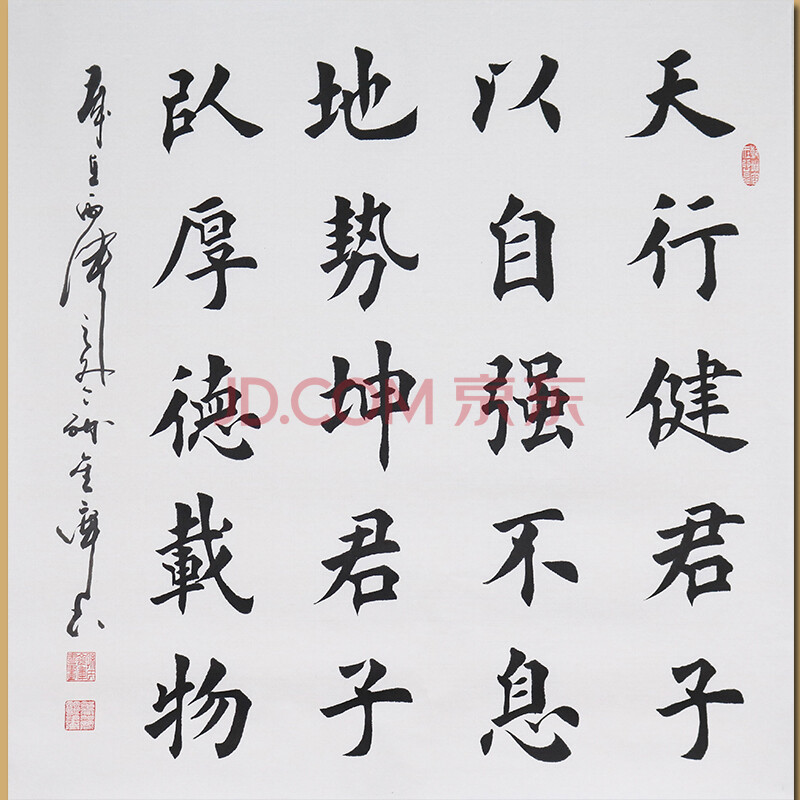 天行健君子
以自强不息
地势坤君子
以厚德載物
JD.COM 京东